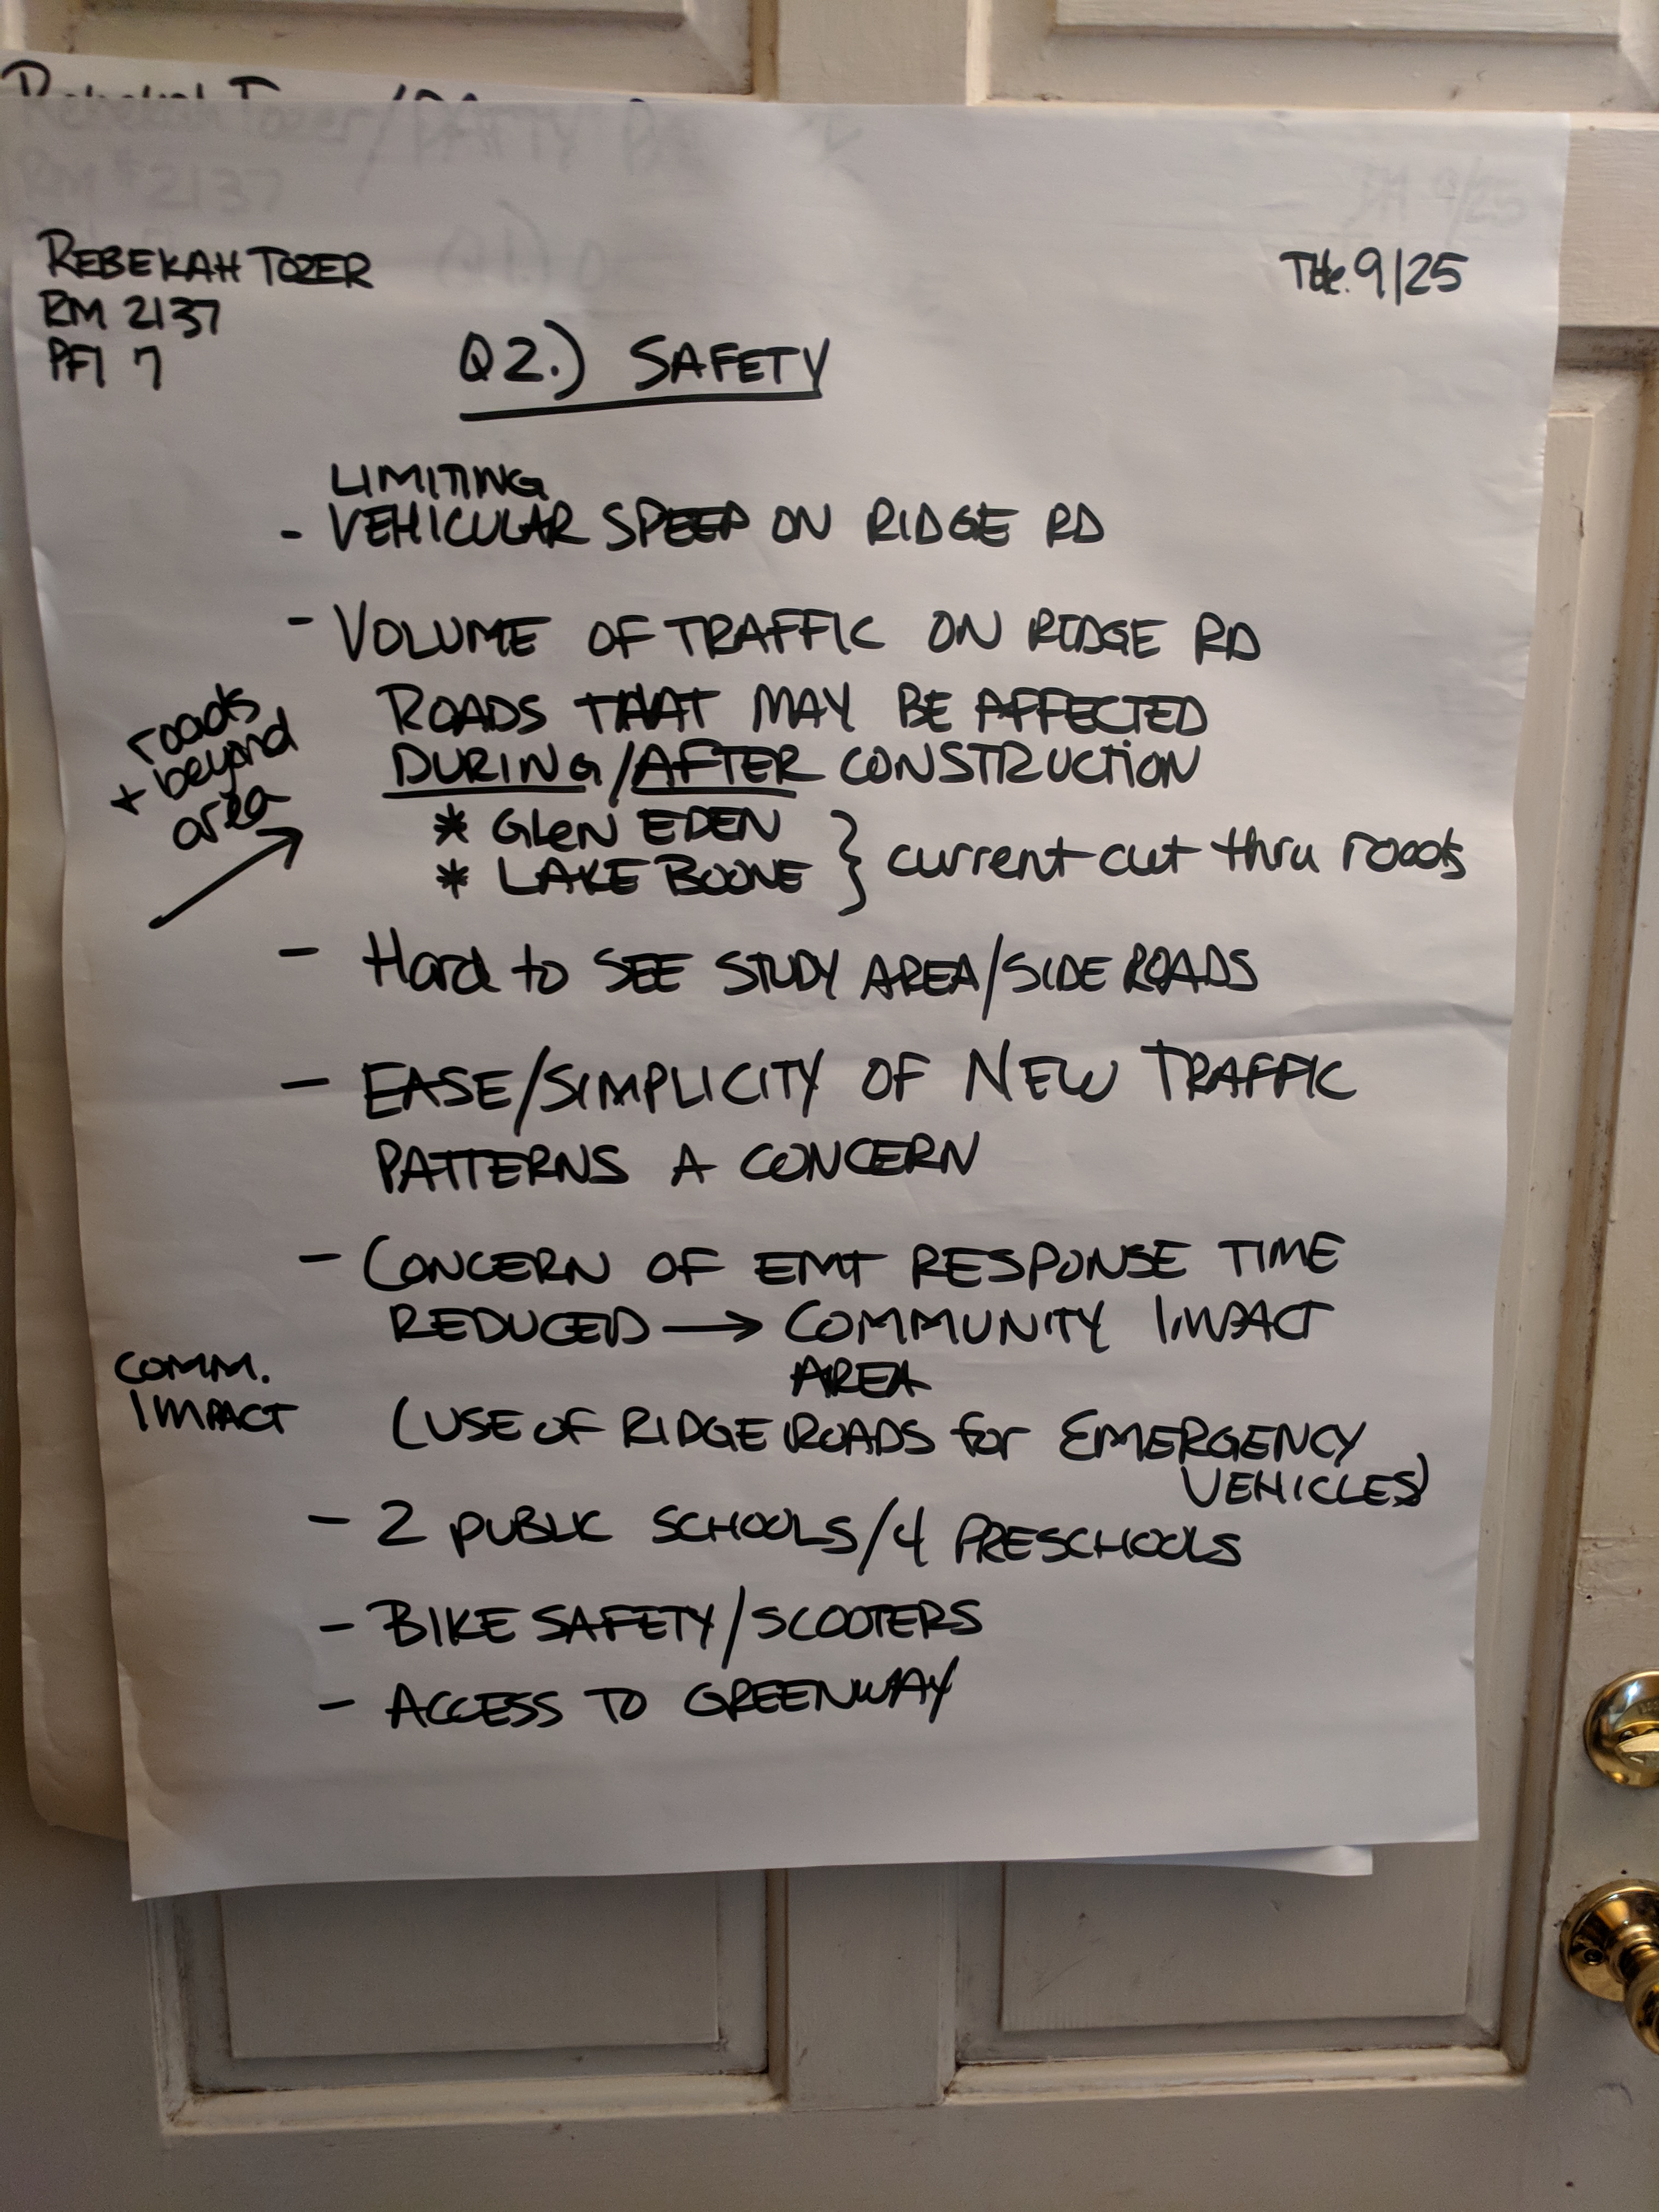 Rebekah Tozer/PATTY
RM #2137
9/25
REBEKAH TOZER
RM 2137
PFI 7
Tue. 9/25
Q2.) SAFETY
LIMITING
- VEHICULAR SPEED ON RIDGE RD
- VOLUME OF TRAFFIC ON RIDGE RD
ROADS THAT MAY BE AFFECTED
DURING/AFTER CONSTRUCTION
roads
+ beyond
area
* GLEN EDEN
* LAKE BOONE } current cut thru roads
- Hard to SEE STUDY AREA/SIDE ROADS
- EASE/SIMPLICITY OF NEW TRAFFIC
PATTERNS A CONCERN
- CONCERN OF EMT RESPONSE TIME
REDUCED → COMMUNITY IMPACT
AREA
COMM.
IMPACT
(USE OF RIDGE ROADS for EMERGENCY
VEHICLES)
- 2 PUBLIC SCHOOLS/4 PRESCHOOLS
- BIKE SAFETY/SCOOTERS
- ACCESS TO GREENWAY